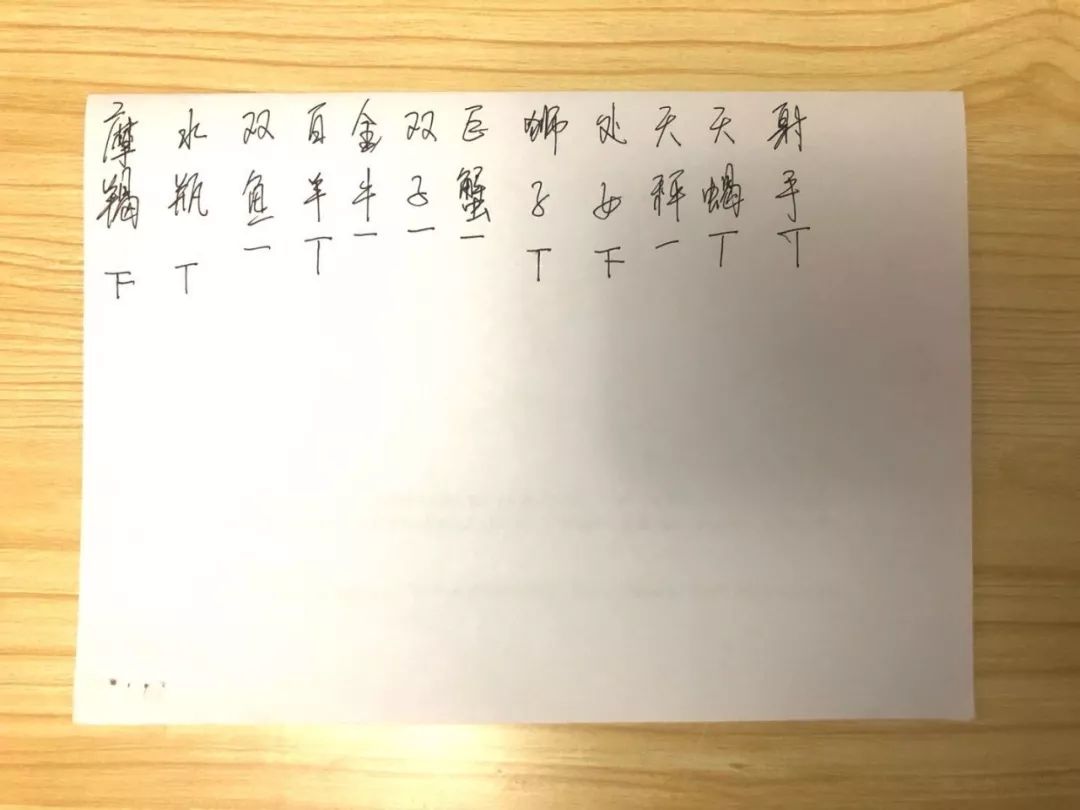 摩羯下
水瓶丅
双鱼一
百羊丅
金牛一
双子一
巨蟹一
狮子丅
处女下
天秤一
天蝎丅
射手丅